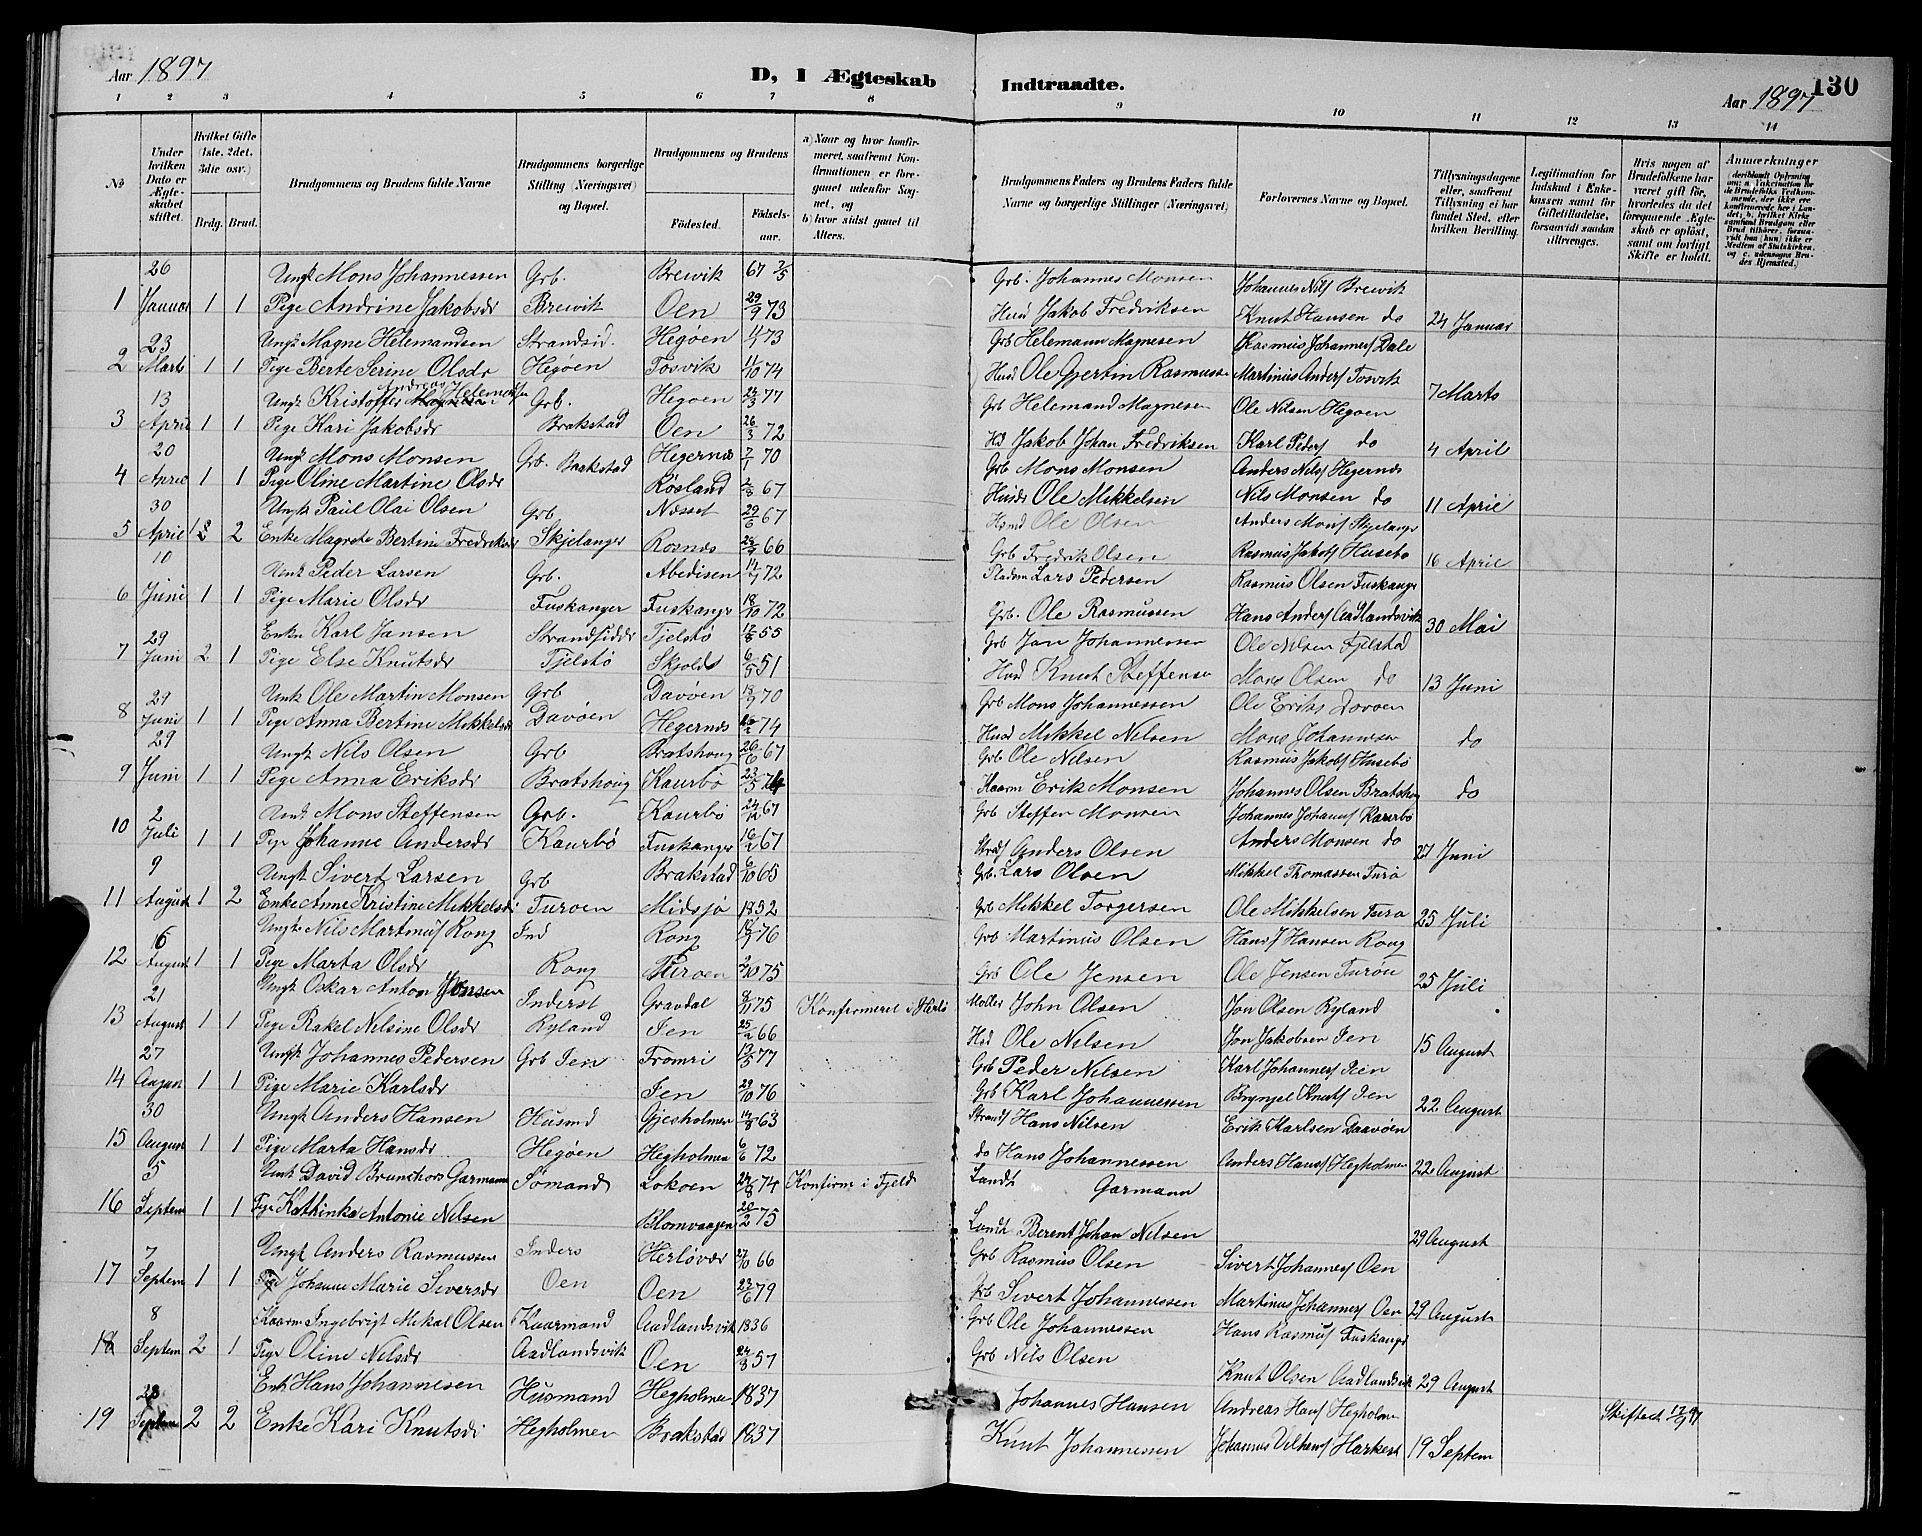 Aar 1897
D, 1 Ægteskab
Indtraadte.
130
Aar 1897
1 2 3 4 5 6 7 8 9 10 11 12 13 14
No
Under hvilken Dato er Ægteskabet stiftet.
Hvilket Gifte (1ste, 2det, 3die osv.)
Brdg. Brud.
Brudgommens og Brudens fulde Navne
Brudgommens borgerlige Stilling (Næringsvei) og Bopæl.
Brudgommens og Brudens
Fødested.
Fødselsaar.
a) Naar og hvor konfirmeret, saafremt Konfirmationen er foregaaet udenfor Sognet, og
b) hvor sidst gaaet til Alters.
Brudgommens Faders og Brudens Faders fulde Navne og borgerlige Stillinger (Næringsvei)
Forlovernes Navne og Bopæl.
Tillysningsdagene eller, saafremt Tillysning ei har fundet Sted, efter hvilken Bevilling.
Legitimation for Indskud i Enkekassen samt for Giftetilladelse, forsaavidt saadan tiltrænges.
Hvis nogen af Brudefolkene har været gift før, hvorledes da det foregaaende Ægteskab er opløst, samt om lovligt Skifte er holdt.
Anmærkninger
26 Ungk Mons Johannessen Grb. Brewik 67 2/5 Grb. Johannes Monsen Johannes Nils Brewik
1 Januar 1 1 Pige Andrine Jakobsdr Brewik Oen 29/9 73 Husd Jakob Fredriksen Knut Hansen do 24 Januar
23 Ungk Magne Helemandsen Strandsid. Hegøen 73 Grb Helemann Magnesen Rasmus Johannes Dale
2 Marts 1 1 Pige Berte Serine Olsdr Hegöen Fosvik 11/10 74 Husd Ole Gjertin Rasmusse Martinus Anders Fosvik 7 Marts
13 Ungk Kristoffer Andreas Helemandsen Grb. Hegoen 77 Grb Helemand Magnesen Ole Nilsen Hegoen
3 April 1 1 Pige Kari Jakobsdr Brakstad Oen 26/3 72 Hd Jakob Johan Fredriksen Karl Peders do 4 April
20 Ungk Mons Monsen Grb. Brakstad Hegernes 7/1 70 Grb Mons Monsen Anders Nils Hegernes
4 April 1 1 Pige Oline Martine Olsdr Røsland 67 Husdr Ole Mikkelsen Nils Monsen do 11 April
30 Ungk Paul Olai Olsen Grb Nesset 29/6 67 Hsmd Ole Olsen Anders Mons Skjelanger
5 April 2 Enke Magrete Bertine Fredriksdr Skjelanger Rosnes 66 Grb Fredrik Olsen Rasmus Jakobs Husebø 16 April
10 Ungk Peder Larsen Grb. Abedisen 72 Pladsm Lars Pedersen Rasmus Olsen Fuskange
6 Juni 1 1 Pige Marie Olsdr Fuskanger Fuskanger 18/10 72 Grb. Ole Rasmussen Hans Anders Aadlandsvik 30 Mai
29 Enkm Karl Jansen Strandsidder Tjelstø 17/8 55 Grb Jan Johannessen Ole Nilsen Tjelstad
7 Juni 2 1 Pige Else Knutsdr Tjelstø Skjolds 6/5 51 Husd Knut Steffense Mons Olsen do 13 Juni
29 Ungk Ole Martin Monsen Grb Davøen 70 Grb Mons Johannessen Ole Eriks Davoen
8 Juni 1 1 Pige Anna Bertine Mikkelsdr Davöen Hegernes 74 Husd Mikkel Nilsen Mons Johannesen do
29 Ungk Nils Olsen Grb Bratshoug 26/6 67 Grb Ole Nilsen Rasmus Jakobs Husebø
9 Juni 1 1 Pige Anna Eriksdr Bratshoug Kaurbø 23/5 74 Kaarm Erik Monsen Johannes Olsen Bratshoug do
2 Ungk Mons Steffensen Grb. Kaurbø 67 Grb Steffen Monsen Johannes Johanns Kaurbø
10 Juli 1 1 Pige Johanne Andersdr Kaurbø Fuskanger 16/2 67 Strds Anders Olsen Anders Monsen do 27 Juni
9 Ungk Sivert Larsen Grb Brakstad 6/10 65 Grb. Lars Olsen Mikkel Thomassen Turø
11 August 1 2 Enke Anne Kristine Mikkelsdr Turoen Midsjø 1832 Grb Mikkel Torgersen Ole Mikkelsen Turø 25 Juli
16 Ungk Nils Martinus Rong Ind Rong 76 Grb Martinus Olsen Hans Hansen Rong
12 August 1 1 Pige Marta Olsdr Rong Turoen 75 Grb Ole Jensen Ole Jensen Turöe 25 Juli
21 Ungk Oskar Anton Jonsen Inderst Gravdal 75 Konfirmeret i Herlø Møller John Olsen Jon Olsen Ryland
13 August 1 1 Pige Rakel Nelsine Olsdr Ryland Ien 25/2 66 Hsd Ole Nilsen Jon Jakobsen Ien 15 August
27 Ungk Johannes Pedersen Grb Ien Fromri 13/5 77 Grb Peder Nilsen Karl Johannes Ien
14 August 1 1 Pige Marie Karlsdr Ien 29/10 76 Grb Karl Johannessen Brynjel Knuts Ien 22 August
30 Ungk Anders Hansen Husmd Gjesholmen 63 Strands Hans Nilsen Erik Karlsen Daavøen
15 August 1 1 Pige Marta Hansdr. Hegøen Hegholmen 6/6 72 do Hans Johannessen Anders Hans Hegholmen 22 August
5 Ungk David Brunchors Garmann Sömand Lokoen 24/8 74 Konfirm i Fjeld Landh Garmann
16 Septem 1 1 Pige Kathinka Antonie Nilsen Blomvaagen 20/2 75 Landh Berent Johan Nilsen 29 August
7 Ungk Anders Rasmussen Inders Herløvær 27/10 66 Grb Rasmus Olsen Sivert Johannes Oen
17 Septem 1 1 Pige Johanne Marie Siversdr Oen Oen 23/6 79 Grb Sivert Johannessen Martinus Johannes Oen 29 August
8 Kaarm Ingebrigt Mikal Olsen Kaarmand Aadlandsvik 1836 Grb Ole Johannessen Hans Rasmus Fuskange
18 Septem 2 1 Pige Oline Nilsdr Aadlandsvik Oen 24/8 57 Grb Nils Olsen Knut Olsen Aadlandsvik 29 August
28 Enk Hans Johannesen Husmand Hegholmen 1837 Johannes Hansen Andreas Hans Hegholmen Skiftet 97
19 Septem 2 2 Enke Kari Knutsdr Hegholmen Brakstad 1837 Knut Johannessen Johannes Vilhems Harkest 19 Septem